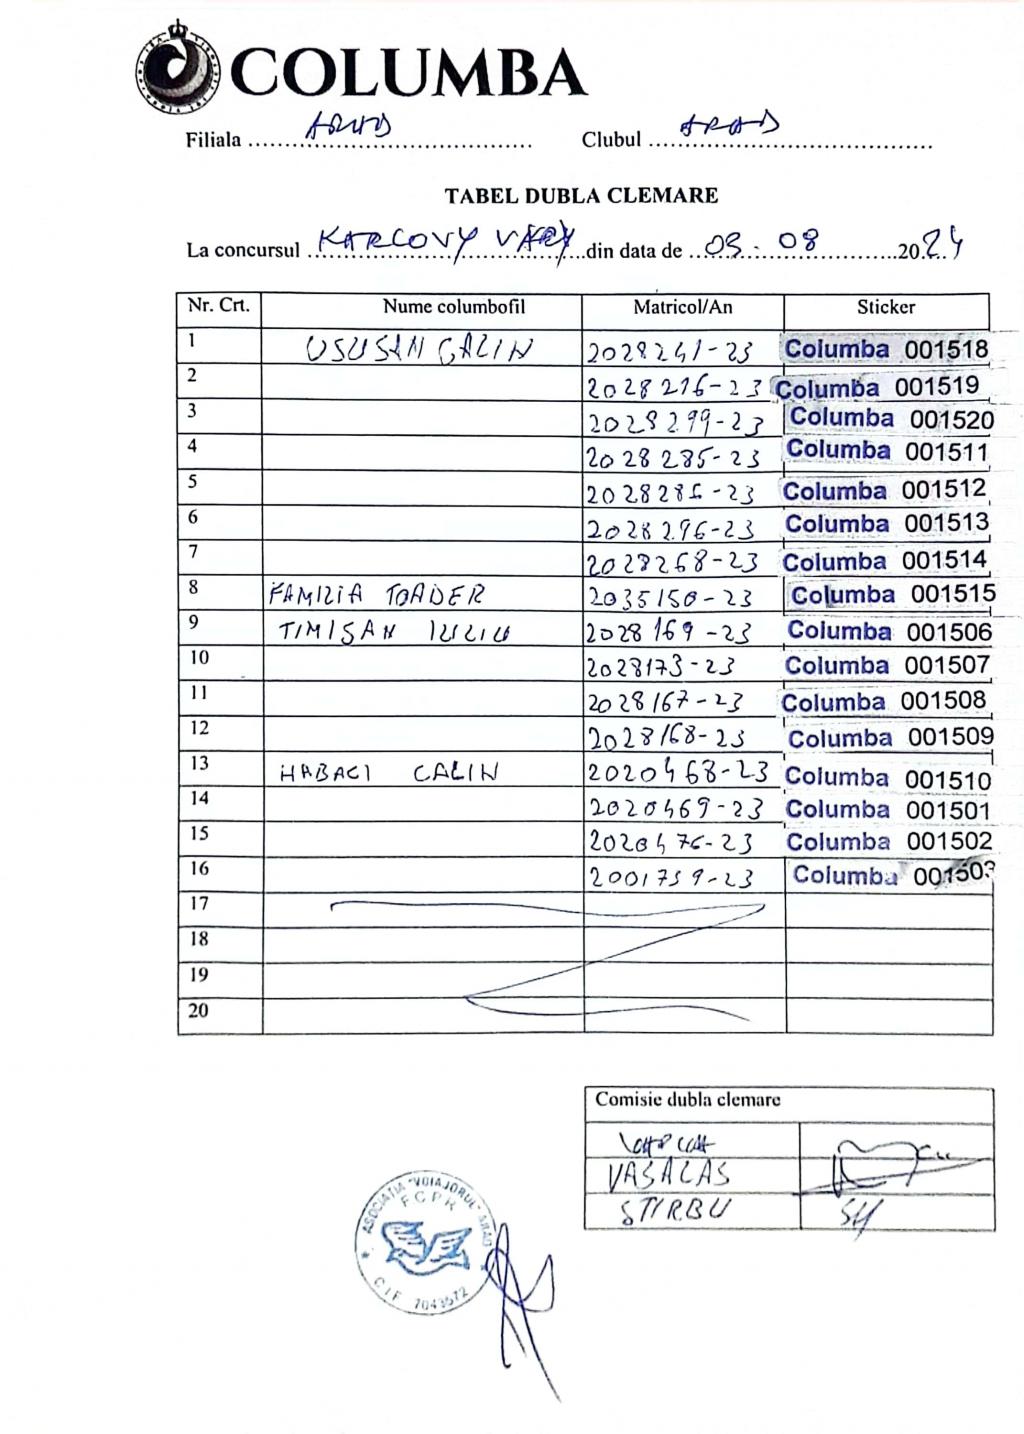 COLUMBA
Filiala ARAD Clubul ARAD
TABEL DUBLA CLEMARE
La concursul KARLOVY VARY din data de 09.08 2024
Nr. Crt. Nume columbofil Matricol/An Sticker
1 USUSAN CALIN 2028241-23 Columba 001518
2 2028276-23 Columba 001519
3 2028299-23 Columba 001520
4 2028285-23 Columba 001511
5 2028286-23 Columba 001512
6 2028296-23 Columba 001513
7 2028268-23 Columba 001514
8 FAMILIA TOADER 2035150-23 Columba 001515
9 TIMISAN IULIU 2028169-23 Columba 001506
10 2028173-23 Columba 001507
11 2028167-23 Columba 001508
12 2028168-23 Columba 001509
13 HABACI CALIN 2020468-23 Columba 001510
14 2020469-23 Columba 001501
15 2020476-23 Columba 001502
16 2001759-23 Columba 001503
17
18
19
20
Comisie dubla clemare
VASALAS
STIRBU
ASOCIATIA "VOIAJORUL" ARAD
FCPR
CIF 7043572